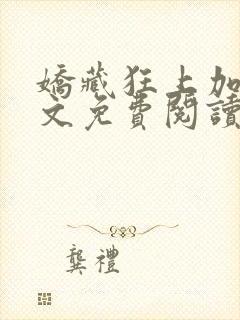 嬌藏狂上加
文免費閱讀
龔禮